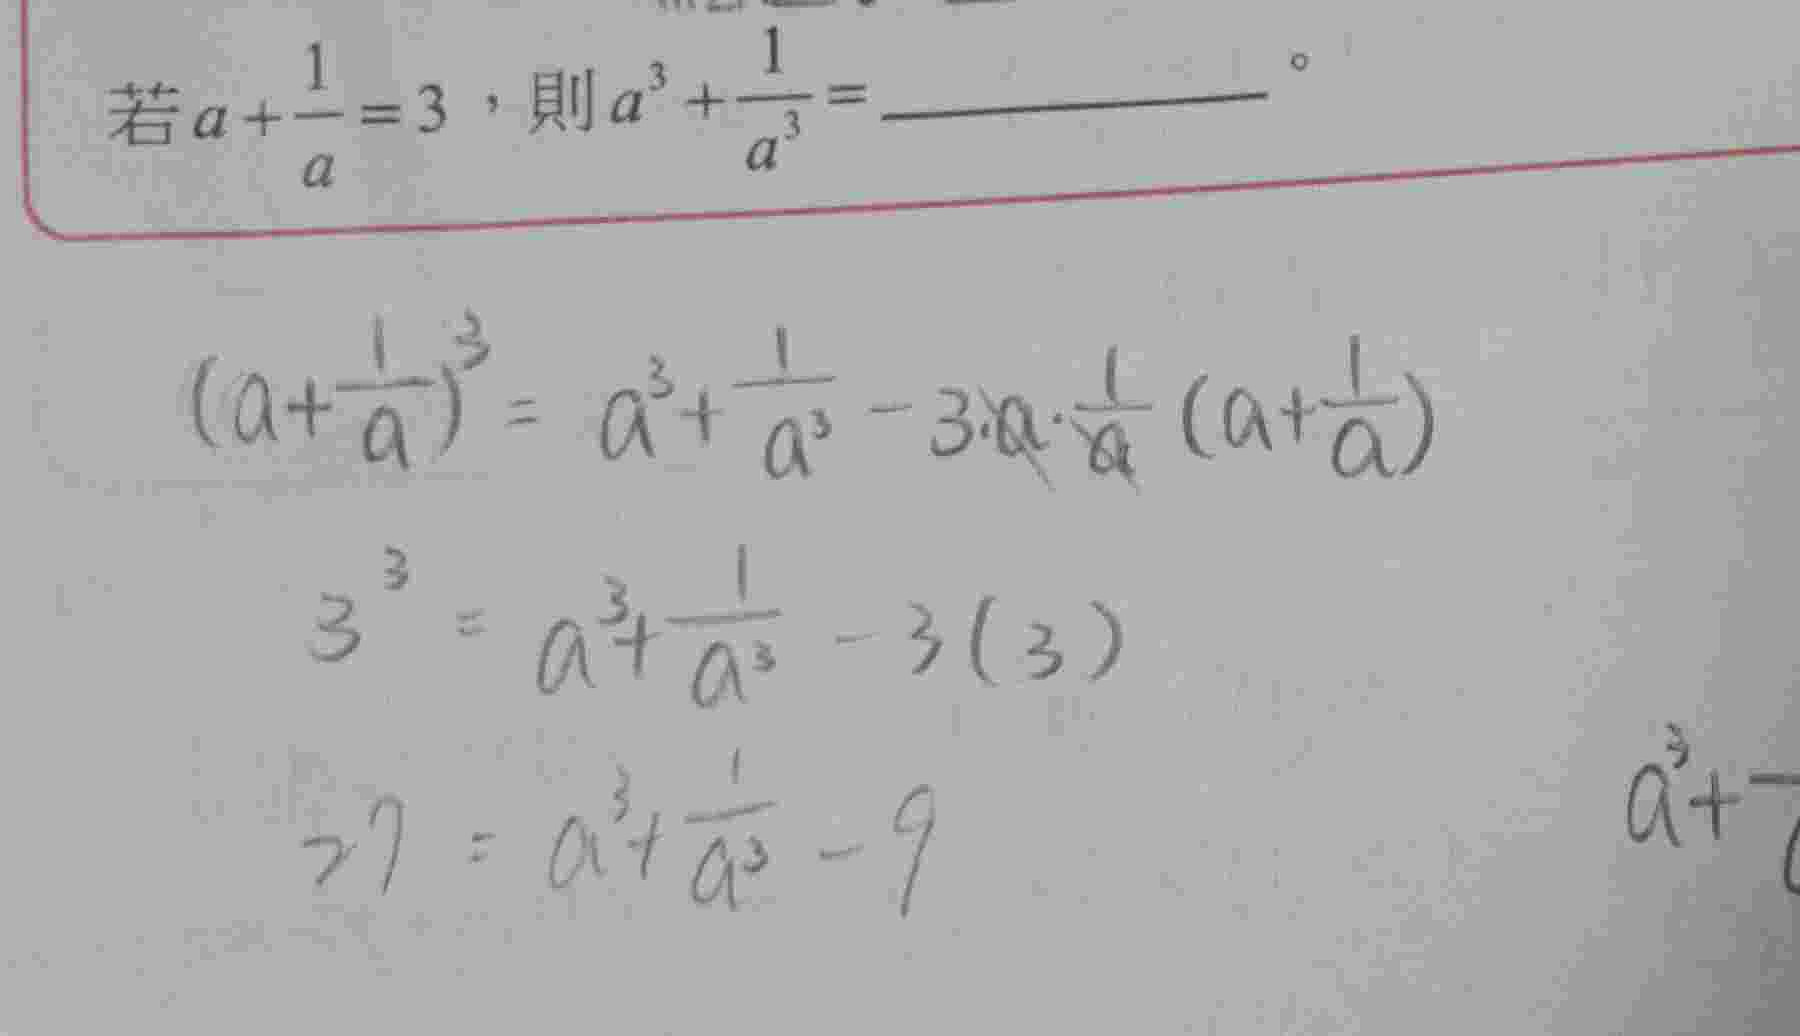 若 a + 1/a = 3，則 a³ + 1/a³ = ________ 。
(a + 1/a)³ = a³ + 1/a³ - 3·a·1/a (a + 1/a)
3³ = a³ + 1/a³ - 3(3)
27 = a³ + 1/a³ - 9
a³ +